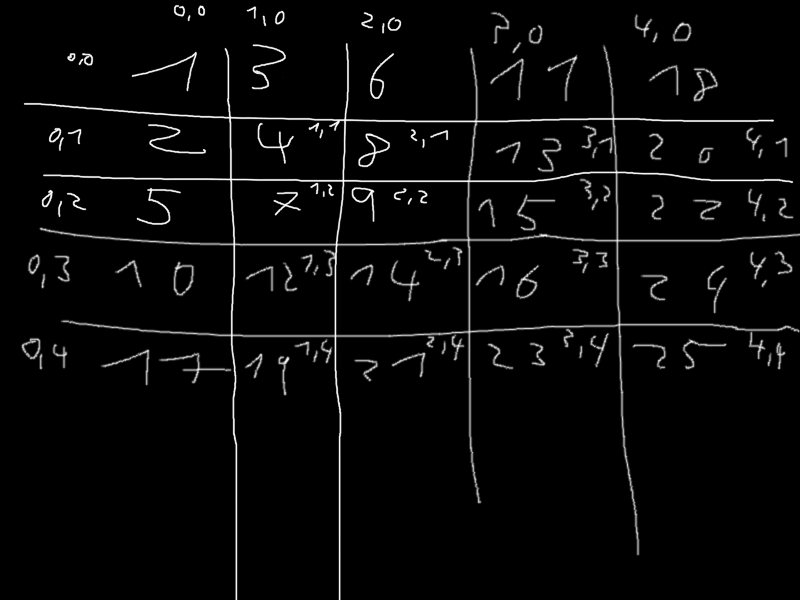 0,0 1,0 2,0 3,0 4,0
0,0 1 3 6 11 18
0,1 2 4 1,1 8 2,1 13 3,1 20 4,1
0,2 5 7 1,2 9 2,2 15 3,2 22 4,2
0,3 10 12 1,3 14 2,3 16 3,3 24 4,3
0,4 17 19 1,4 21 2,4 23 3,4 25 4,4